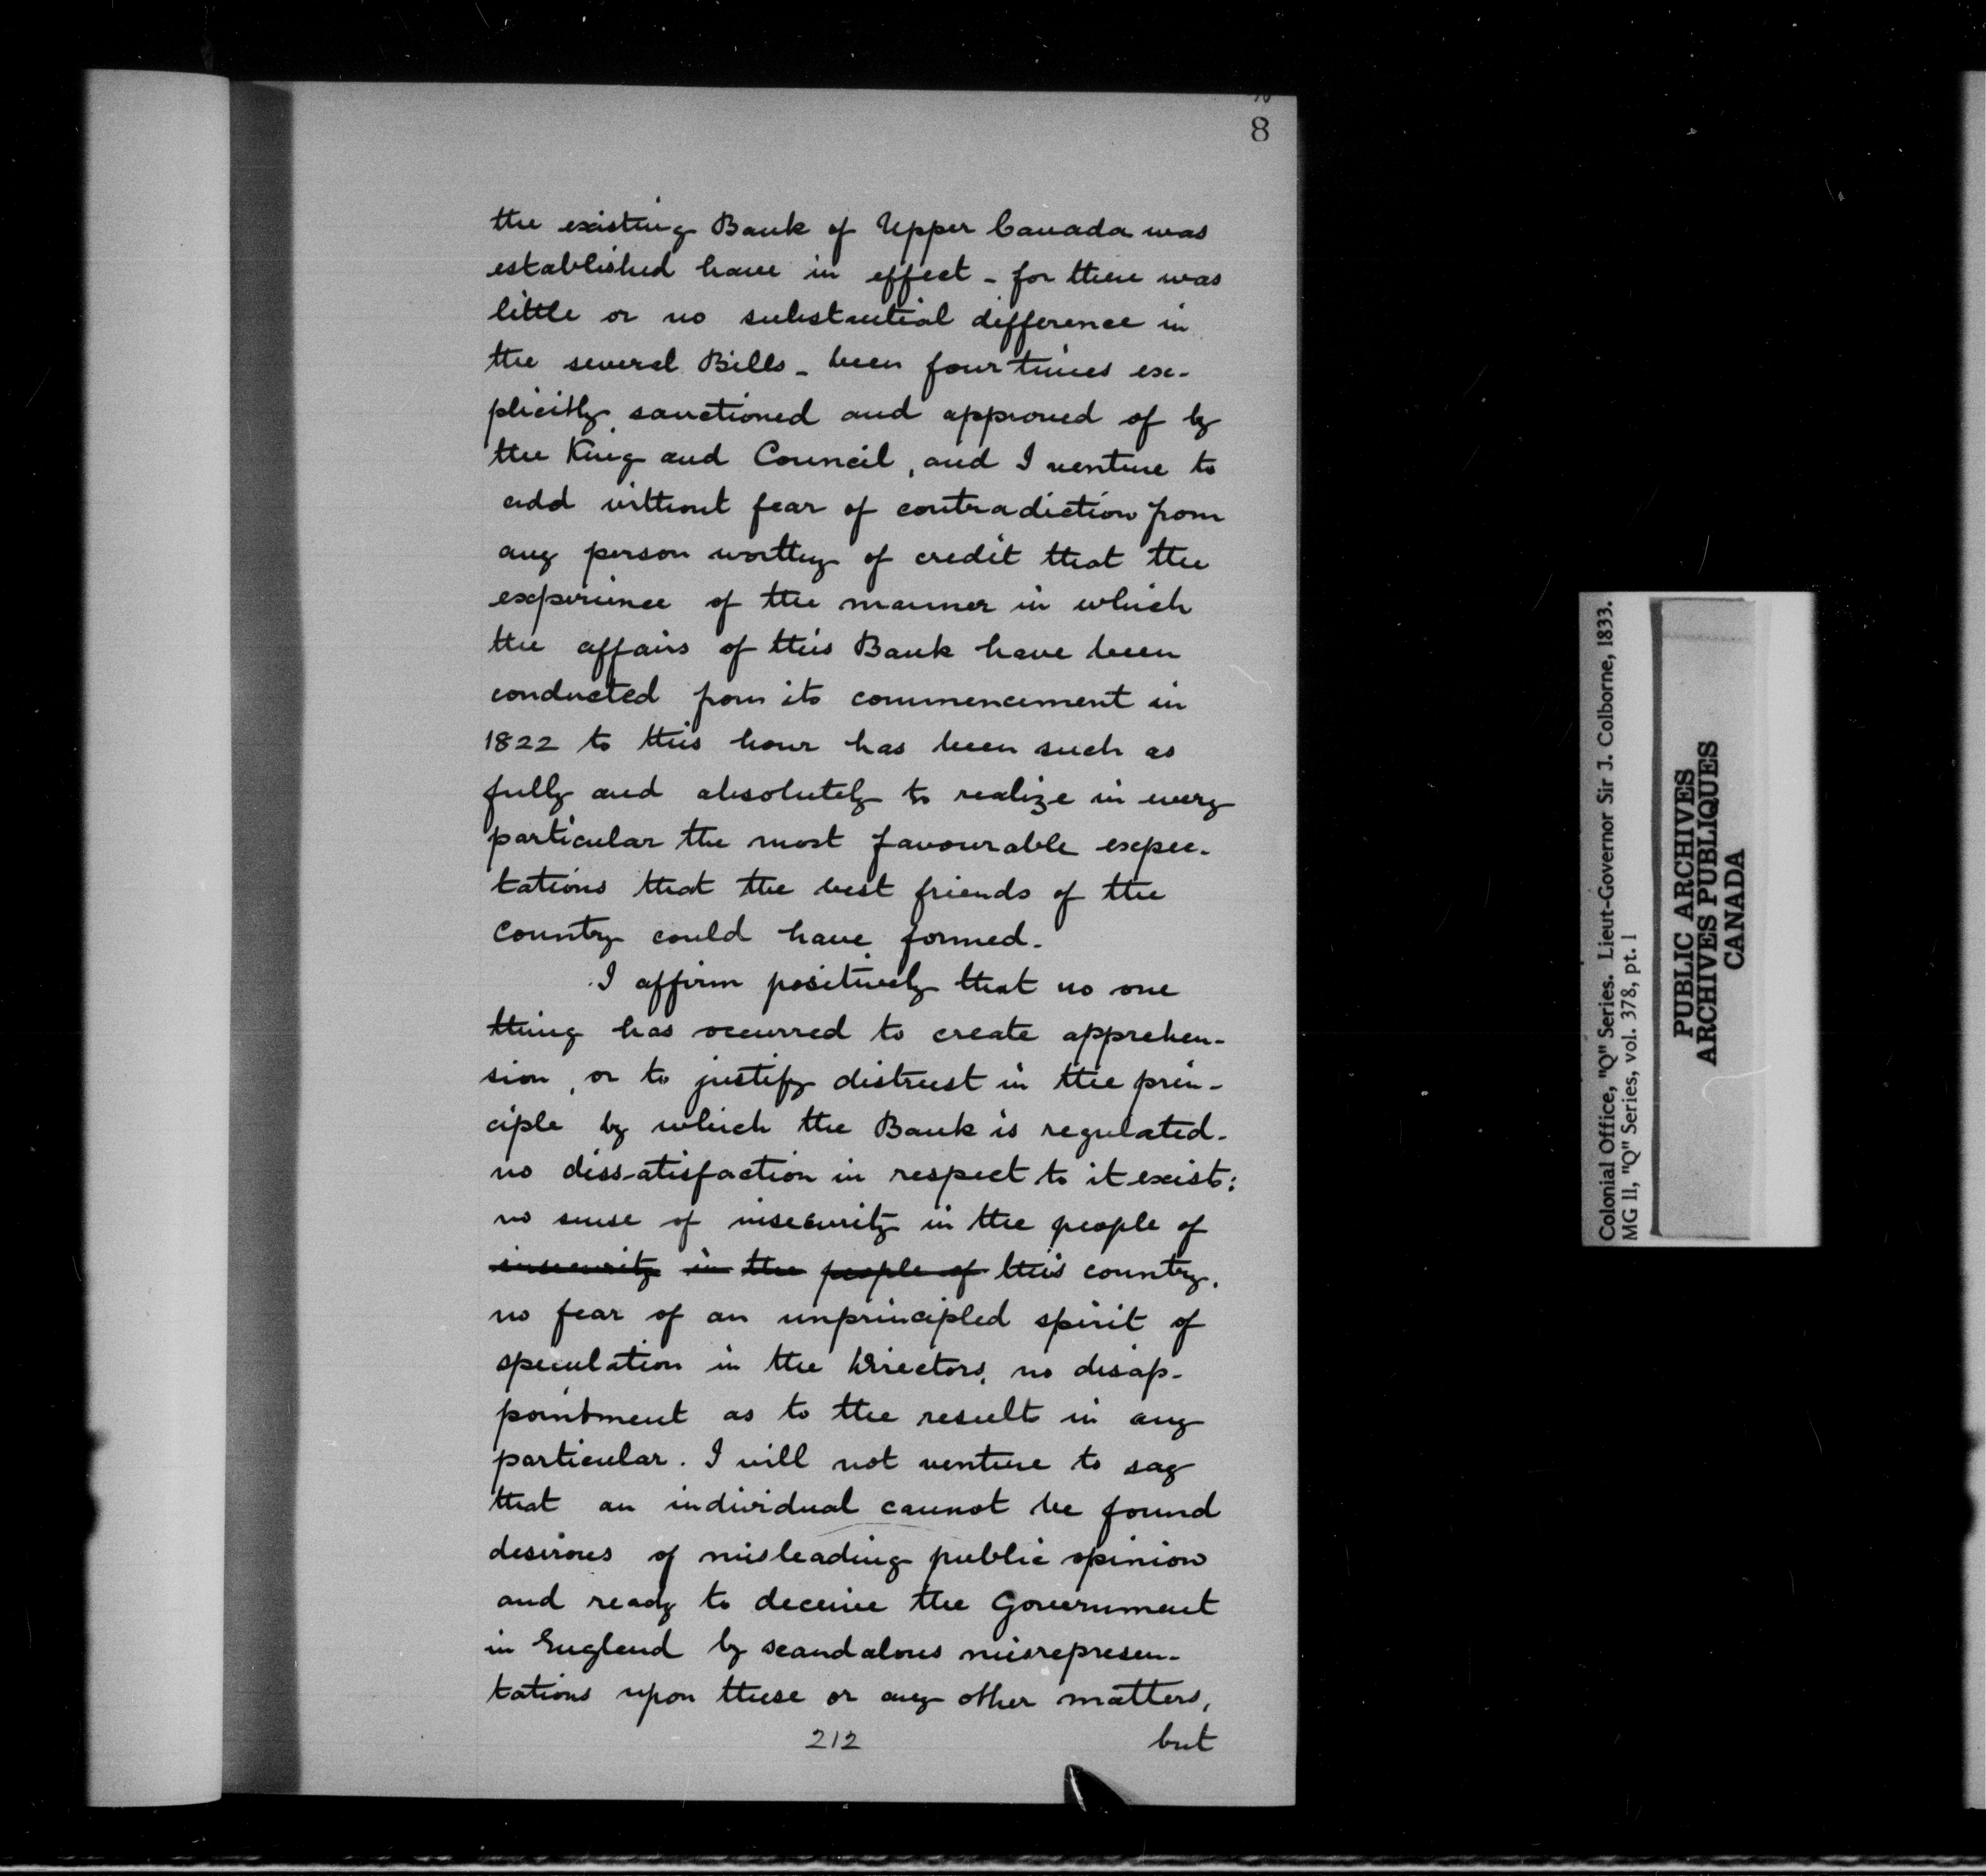 8
the existing Bank of Upper Canada was
established have in effect - for there was
little or no substantial difference in
the several Bills - been four times ex-
plicitly sanctioned and approved of by
the King and Council, and I venture to
add without fear of contradiction from
any person worthy of credit that the
experience of the manner in which
the affairs of this Bank have been
conducted from its commencement in
1822 to this hour has been such as
fully and absolutely to realize in every
particular the most favourable expec-
tations that the best friends of the
Country could have formed.
I affirm positively that no one
thing has occurred to create apprehen-
sion, or to justify distrust in the prin-
ciple by which the Bank is regulated.
no dissatisfaction in respect to it exists:
no sense of insecurity in the people of
insecurity in the people of this country.
no fear of an unprincipled spirit of
speculation in the Directors, no disap-
pointment as to the result in any
particular. I will not venture to say
that an individual cannot be found
desirous of misleading public opinion
and ready to deceive the Government
in England by scandalous misrepresen-
tations upon these or any other matters,
212
but
Colonial Office, "Q" Series. Lieut-Governor Sir J. Colborne, 1833.
MG 11, "Q" Series, vol. 378, pt. 1
PUBLIC ARCHIVES
ARCHIVES PUBLIQUES
CANADA